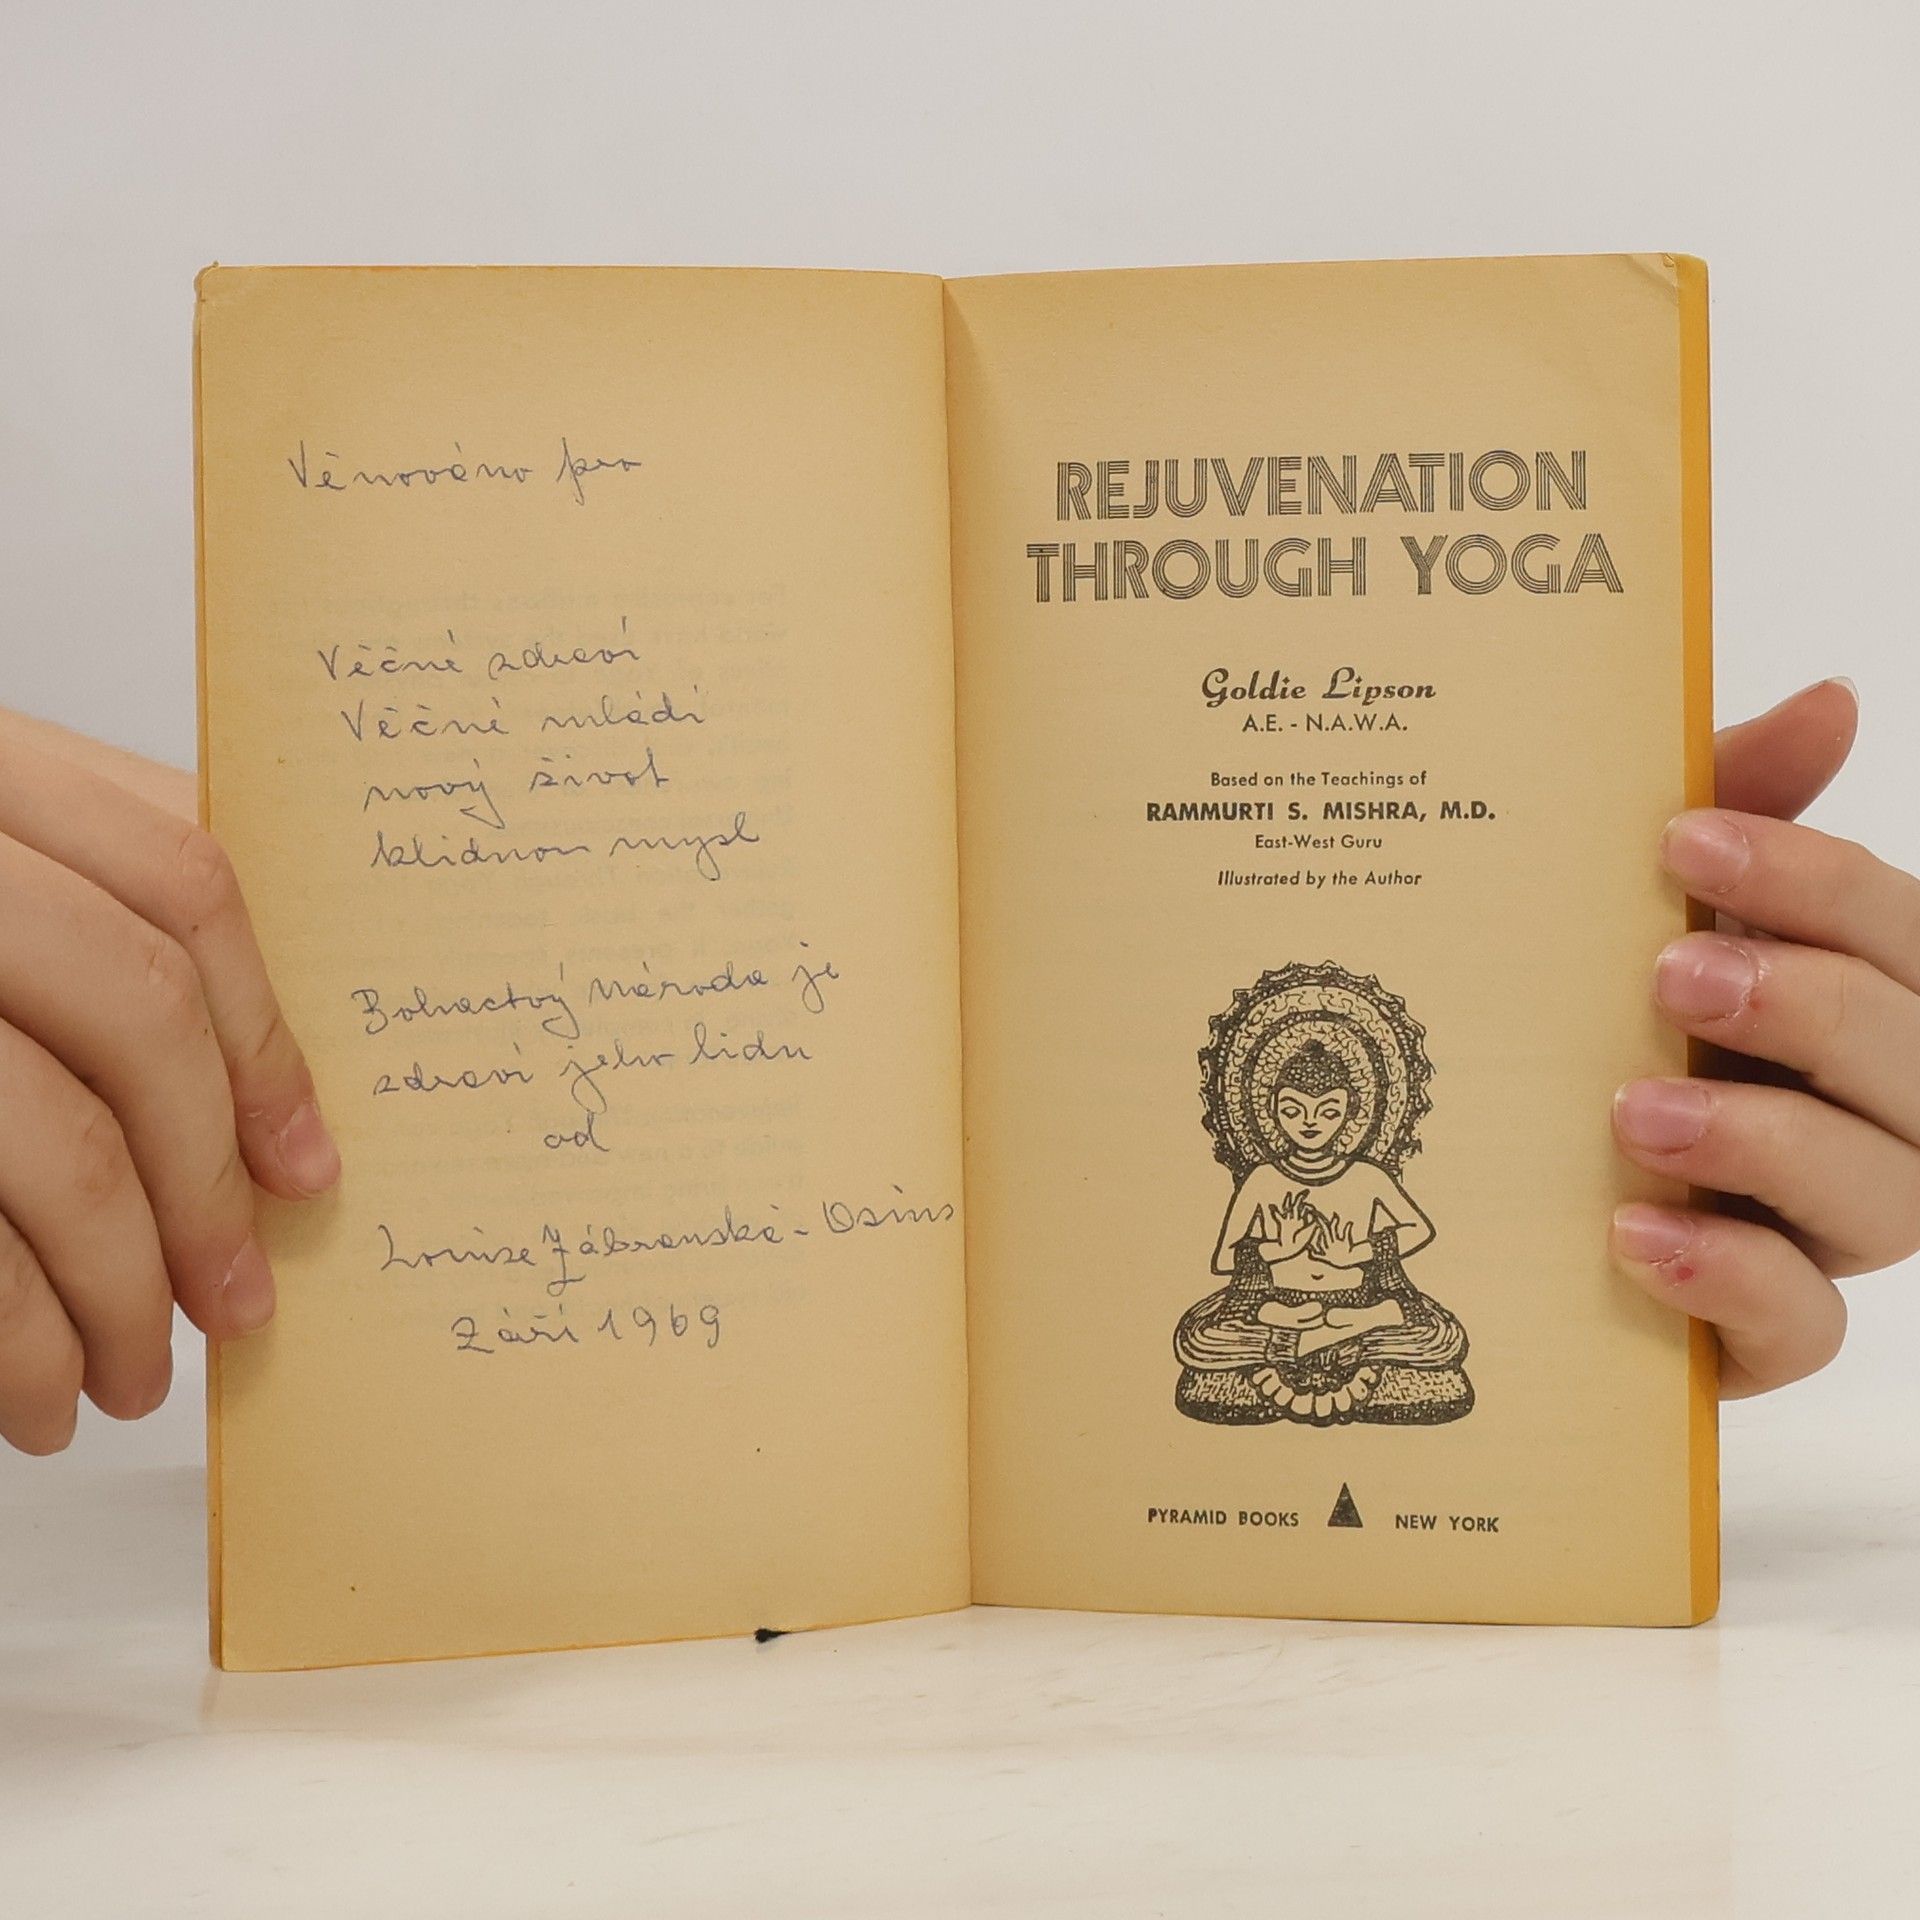 Věnováno pro
Věčné zdraví
Věčné mládí
nový život
klidnou mysl
Bohactvý Národa je
zdraví jeho lidu
od
Louise Zábranská - Osins
Září 1969
REJUVENATION
THROUGH YOGA
Goldie Lipson
A.E. - N.A.W.A.
Based on the Teachings of
RAMMURTI S. MISHRA, M.D.
East-West Guru
Illustrated by the Author
PYRAMID BOOKS NEW YORK